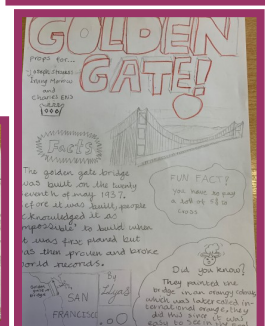 GOLDEN
GATE!
props for...
Joseph Strauss
Irving Morrow
and
Charles Ellis
Facts
The golden gate bridge
was built on the twenty
seventh of may 1937.
before it was built, people
acknowledged it as
impossible to build when
it was first planed but
was then proven and broke
world records.
FUN FACT!
you have to pay
a toll of
Did you know?
They painted the
bridge in an orangy colour
which was later called in-
ternational orange, they
did this since it was
easy to see in the
By
SAN
FRANCISCO